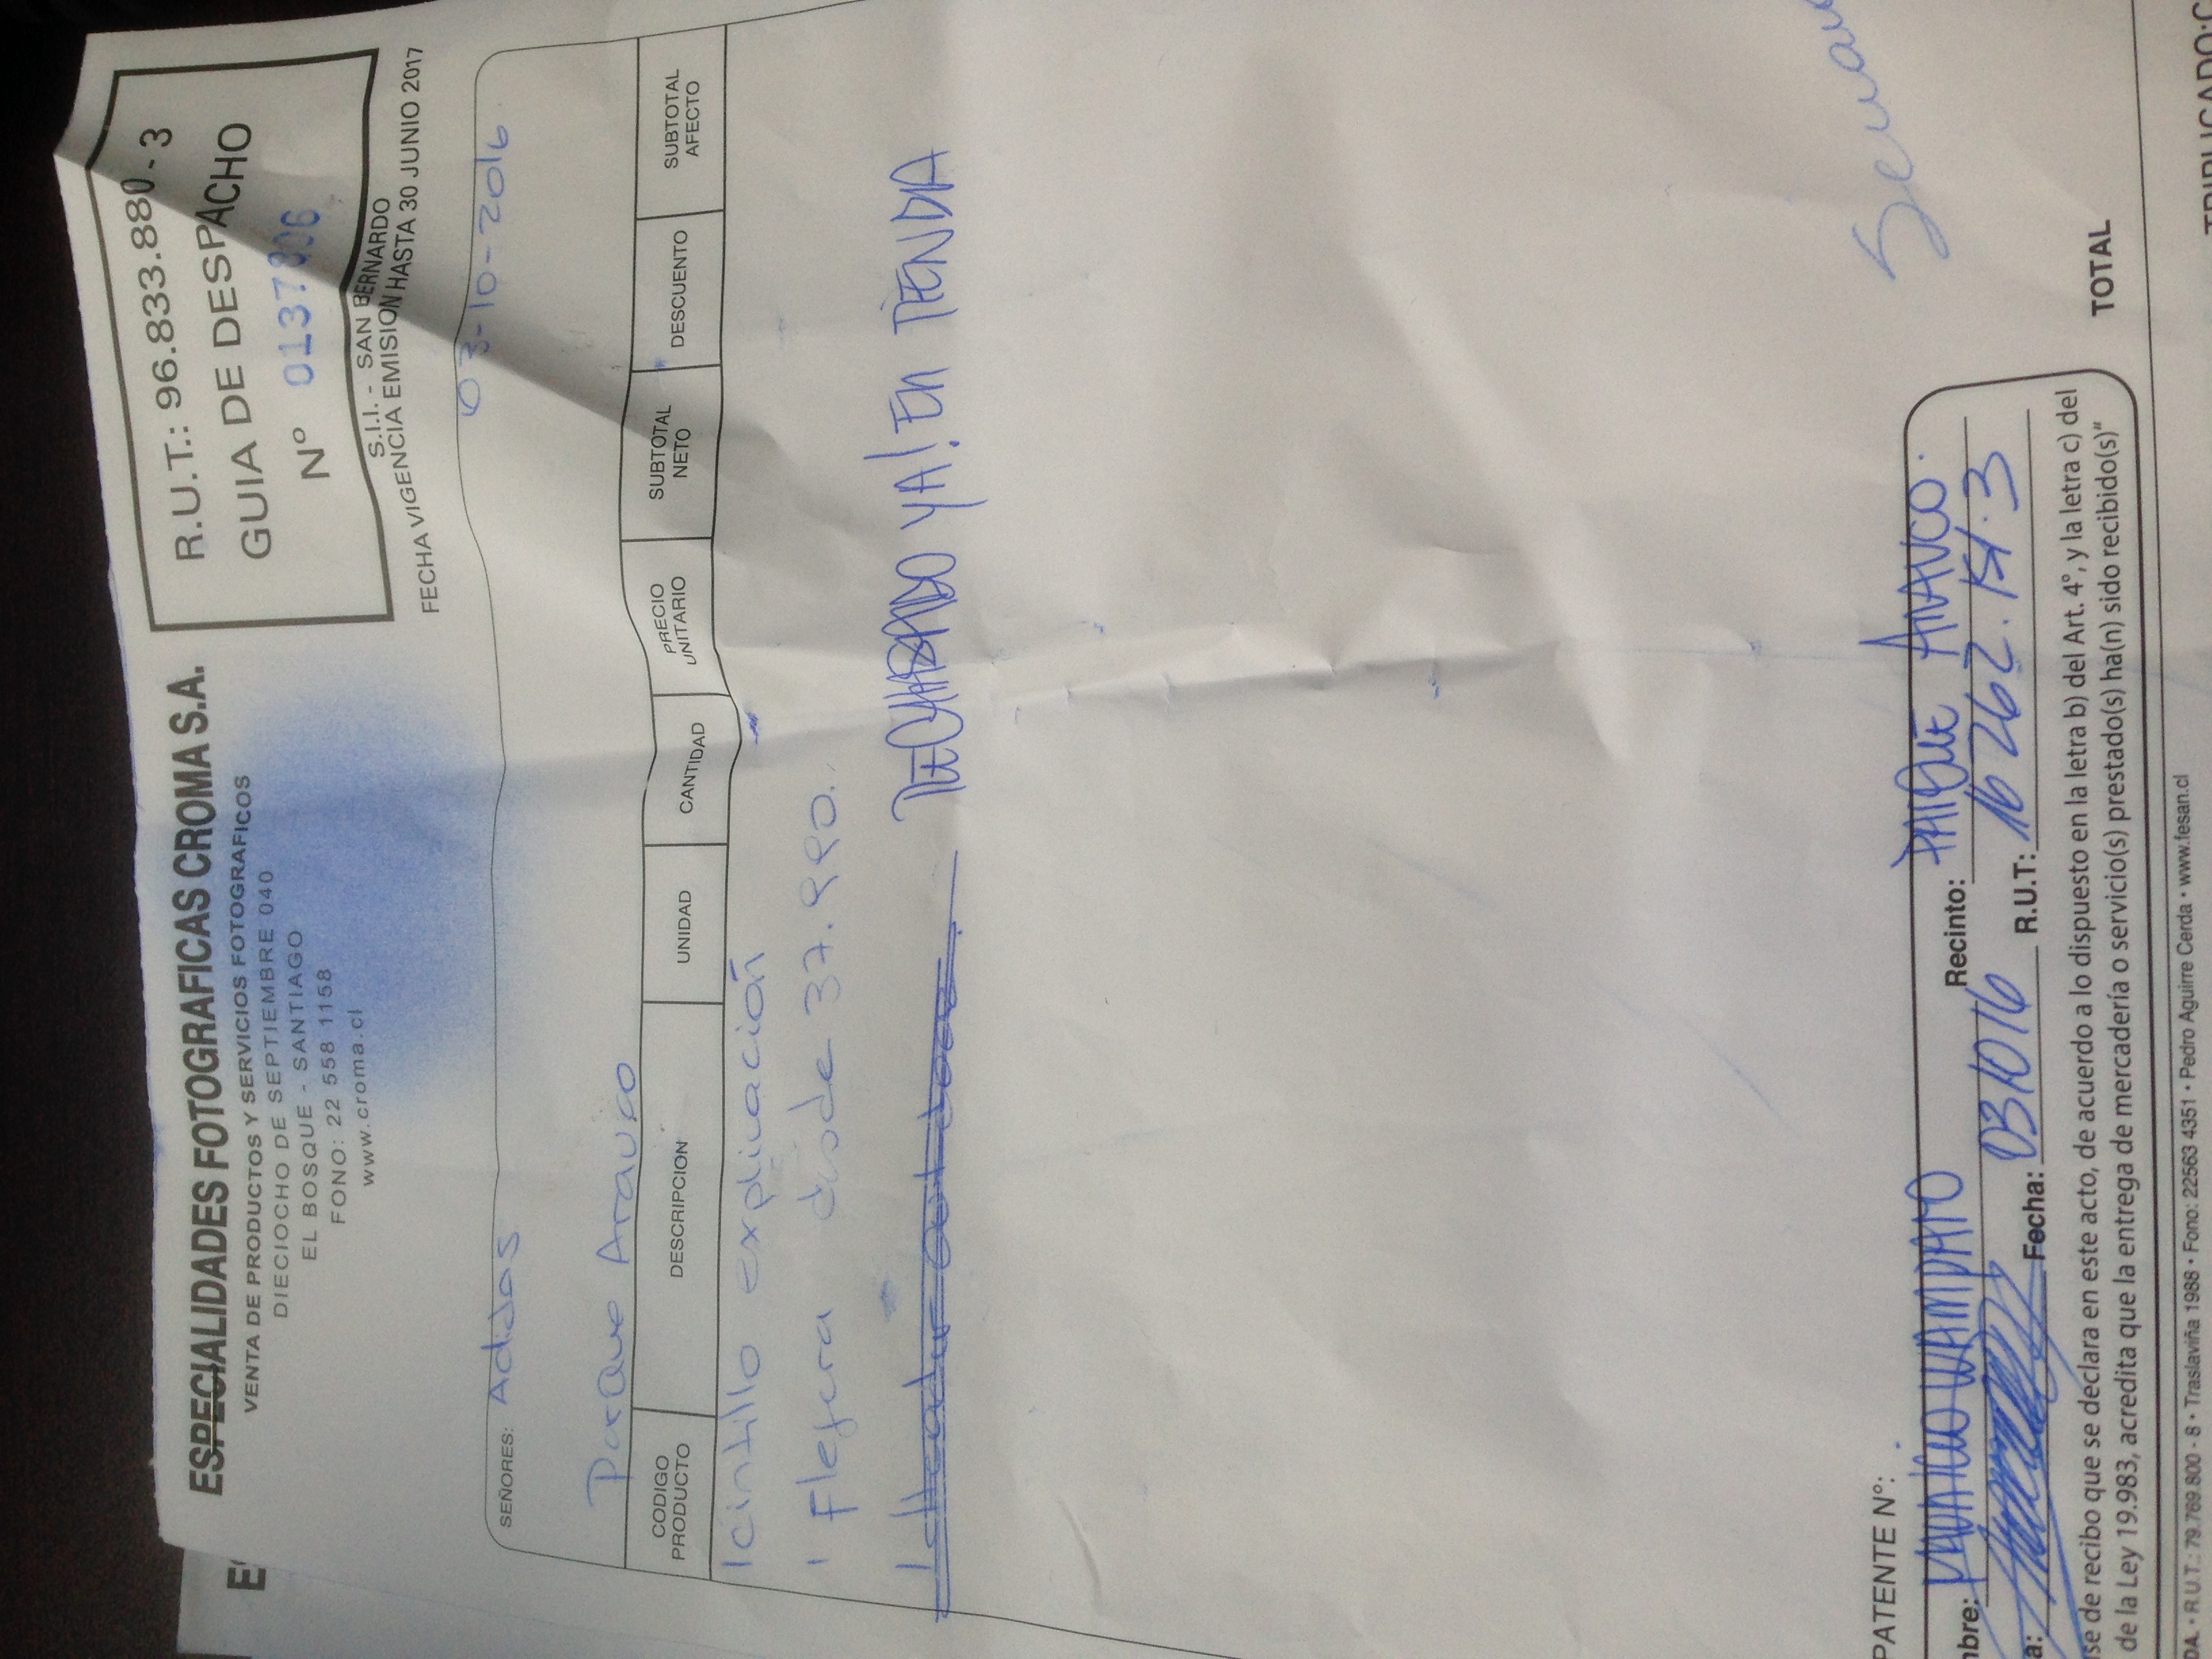 ESPECIALIDADES FOTOGRAFICAS CROMA S.A.
VENTA DE PRODUCTOS Y SERVICIOS FOTOGRAFICOS
DIECIOCHO DE SEPTIEMBRE 040
EL BOSQUE - SANTIAGO
FONO: 22 558 1158
www.croma.cl
R.U.T.: 96.833.880-3
GUIA DE DESPACHO
Nº
S.I.I. - SAN BERNARDO
FECHA VIGENCIA EMISION HASTA 30 JUNIO 2017
03-10-2016
SEÑORES: Adidas
Parque Arauco
CODIGO PRODUCTO DESCRIPCION UNIDAD CANTIDAD PRECIO UNITARIO SUBTOTAL NETO DESCUENTO SUBTOTAL AFECTO
1 cintillo explicación
1 Flejera desde 37.990.
YA! EN TIENDA
PATENTE N°:
mbre: MAURICIO Recinto: PARQUE ARAUCO
a: Fecha: 03/10/16 R.U.T:
se de recibo que se declara en este acto, de acuerdo a lo dispuesto en la letra b) del Art. 4°, y la letra c) del
de la Ley 19.983, acredita que la entrega de mercadería o servicio(s) prestado(s) ha(n) sido recibido(s)"
TOTAL
DA. • R.U.T.: 79.769.800 - 8 • Traslaviña 1988 • Fono: 22563 4351 • Pedro Aguirre Cerda • www.fesan.cl
TRIPLICADO:C